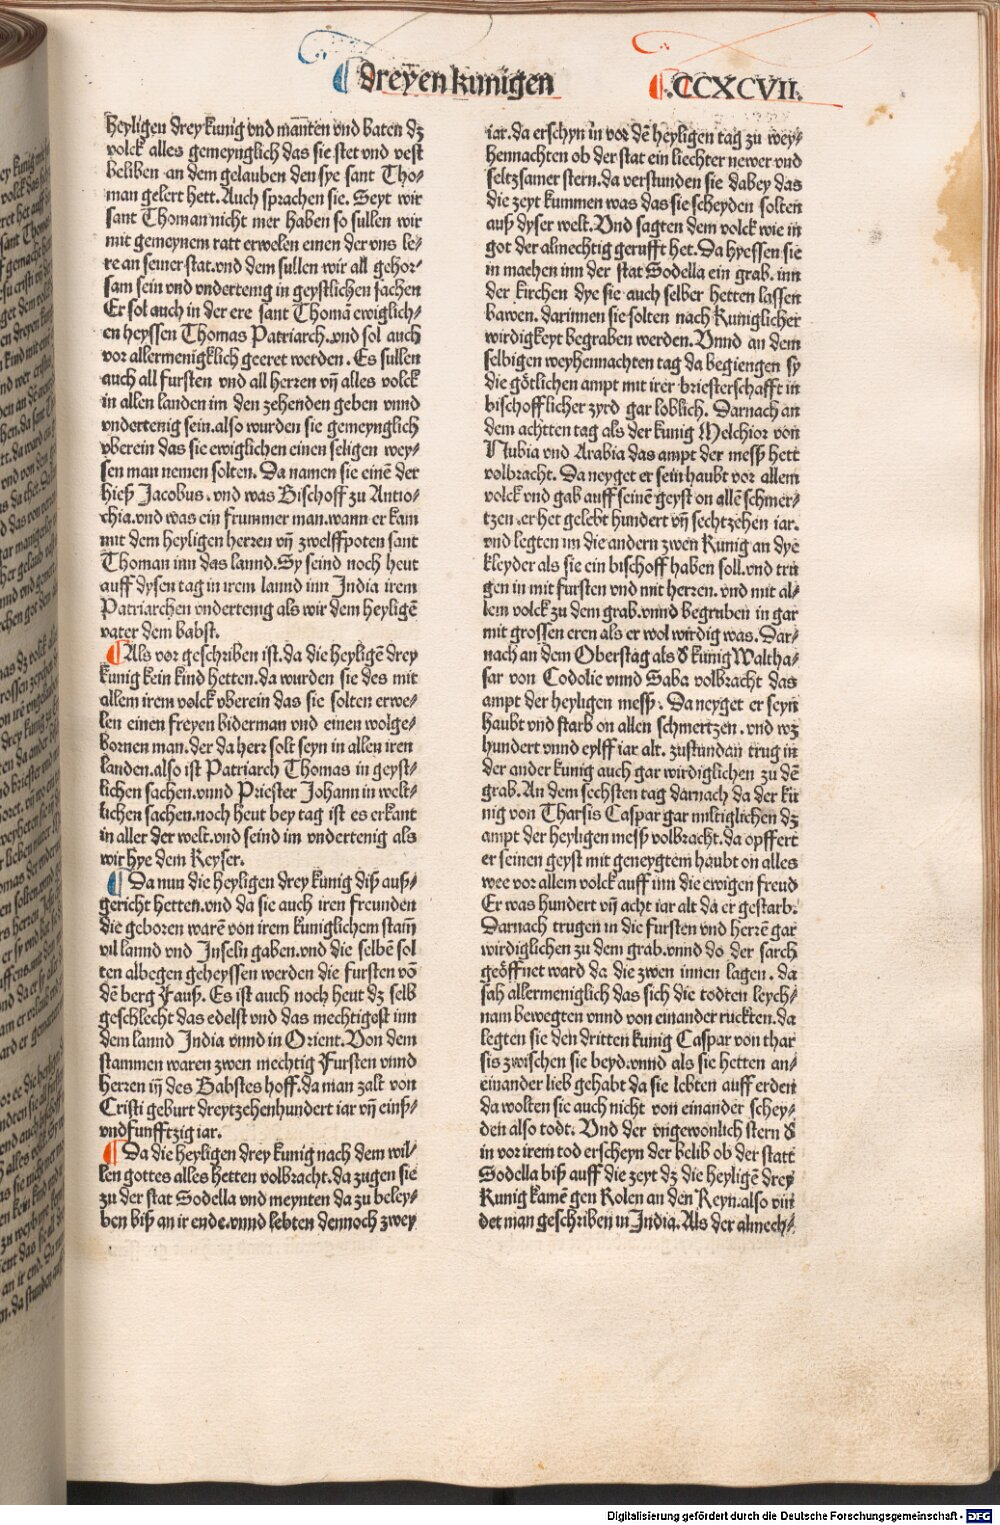 dreyen kunigen
.CCXCVII.
heyligen drey kunig vnd mañten vnd baten dz
volck alles gemeynglich das sie stet vnd vest
beliben an dem gelauben den sye sant Tho-
man gelert hett. Auch sprachen sie. Seyt wir
sant Thoman nicht mer haben so sullen wir
mit gemeynem ratt erwelen einen der vns le-
re an seiner stat. vnd dem sullen wir all gehor-
sam sein vnd vndertenig in geystlichen sachen
Er sol auch in der ere sant Thomā ewiglich-
en heyssen Thomas Patriarch. vnd sol auch
vor allermenigklich geeret werden. Es sullen
auch all fursten vnd all herren vñ alles volck
in allen landen im den zehenden geben vnnd
vndertenig sein. also wurden sie gemeynglich
vberein das sie ewiglichen einen seligen wey-
sen man nemen solten. Da namen sie einē der
hieß Jacobus. vnd was Bischoff zu Antio-
chia. vnd was ein frummer man. wann er kam
mit dem heyligen herren vñ zwelffpoten sant
Thoman inn das lannd. Sy seind noch heut
auff dysen tag in irem lannd inn India irem
Patriarchen vndertenig als wir dem heyligē
vater dem babst.
Als vor geschriben ist. da die heyligē drey
kunig kein kind hetten. da wurden sie des mit
allem irem volck vberein das sie solten erwe-
len einen freyen biderman vnd einen wolge-
bornen man. der da herr solt seyn in allen iren
landen. also ist Patriarch Thomas in geyst-
lichen sachen. vnnd Priester Johann in welt-
lichen sachen. noch heut bey tag ist es erkant
in aller der welt. vnd seind im vndertenig als
wir hye dem Keyser.
Da nun die heyligen drey kunig diß auß-
gericht hetten. vnd da sie auch iren freunden
die geboren warē von irem kuniglichem stam̄
vil lannd vnd Inseln gaben. vnd die selbē sol
ten albegen geheyssen werden die fursten vō
dē berg Fauß. Es ist auch noch heut dz selb
geschlecht das edelst vnd das mechtigost inn
dem lannd India vnnd in Orient. Von dem
stammen waren zwen mechtig Fursten vnnd
herren in des Babstes hoff. da man zalt von
Cristi geburt dreytzehenhundert iar vñ einß-
vndfunfftzig iar.
Da die heyligen drey kunig nach dem wil-
len gottes alles hetten volbracht. da zugen sie
zu der stat Sodella vnd meynten da zu beley-
ben biß an ir ende. vnnd lebten dennoch zwey
iar. da erschyn in vor dē heyligen tag zu wey-
hennachten ob der stat ein liechter newer vnd
seltzsamer stern. da verstunden sie dabey das
die zeyt kummen was das sie scheyden solten
auß dyser welt. Vnd sagten dem volck wie in
got der almechtig gerufft het. Da hyessen sie
in machen inn der stat Sodella ein grab. inn
der kirchen dye sie auch selber hetten lassen
bawen. darinnen sie solten nach Kuniglicher
wirdigkeyt begraben werden. Vnnd an dem
selbigen weyhennachten tag da begiengen sy
die götlichen ampt mit irer briesterschafft in
bischofflicher zyrd gar loblich. Darnach an
dem achtten tag als der kunig Melchior von
Nubia vnd Arabia das ampt der meß hett
volbracht. Da neyget er sein haubt vor allem
volck vnd gab auff seinē geyst on allē schmer-
tzen. er het gelebt hundert vñ sechtzehen iar.
vnd legten im die andern zwen Kunig an dye
kleyder als sie ein bischoff haben soll. vnd trū
gen in mit fursten vnd mit herren. vnd mit al-
lem volck zu dem grab. vnnd begruben in gar
mit grossen eren als er wol wirdig was. Dar-
nach an dem Oberstag als d̕ kunig Waltha-
sar von Codolie vnnd Saba volbracht das
ampt der heyligen meß. Da neyget er seyn
haubt vnd starb on allen schmertzen. vnd wz
hundert vnnd eylff iar alt. zustundan trug in
der ander kunig auch gar wirdiglichen zu dē
grab. An dem sechsten tag darnach da der kū
nig von Tharsis Caspar gar miltiglichen dz
ampt der heyligen meß volbracht. da opffert
er seinen geyst mit geneygtem haubt on alles
wee vor allem volck auff inn die ewigen freud
Er was hundert vñ acht iar alt da er gestarb.
Darnach trugen in die fursten vnd herrē gar
wirdiglichen zu dem grab. vnnd do der sarch
geöffnet ward da die zwen innen lagen. da
sah allermeniglich das sich die todten leych-
nam bewegten vnnd von einander ruckten. da
legten sie den dritten kunig Caspar von thar
sis zwischen sie beyd. vnnd als sie hetten an-
einander lieb gehabt da sie lebten auff erden
da wolten sie auch nicht von einander schey-
den also todt. Vnd der vngewonlich stern d̕
in vor irem tod erscheyn der belib ob der statt
Sodella biß auff die zeyt dz die heyligē drey
Kunig kamē gen Kolen an den Reyn. also vin
det man geschriben in India. Als der almech-
Digitalisierung gefördert durch die Deutsche Forschungsgemeinschaft - DFG